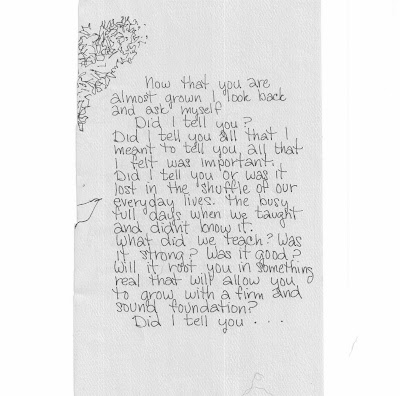 Now that you are
almost grown I look back
and ask myself
Did I tell you?
Did I tell you all that I
meant to tell you, all that
I felt was important.
Did I tell you or was it
lost in the shuffle of our
everyday lives. the busy
full days when we taught
and didnt know it.
What did we teach? Was
it strong? Was it good?
Will it root you in something
real that will allow you
to grow with a firm and
sound foundation?
Did I tell you . . .